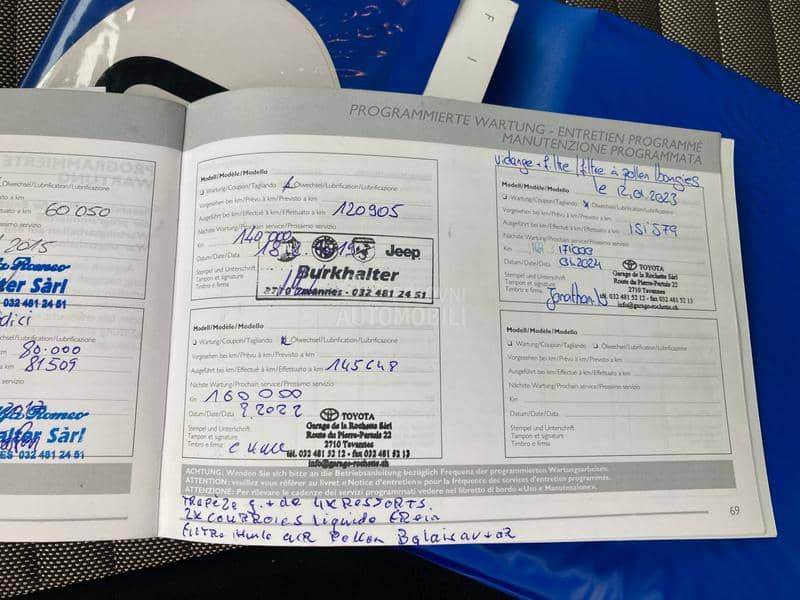 PROGRAMMIERTE WARTUNG - ENTRETIEN PROGRAMMÉ
MANUTENZIONE PROGRAMMATA
Ölwechsel/Lubrification/Lubrificazione
60.050
2015
Romeo
ter Sàrl
032 481 24 51
Ölwechsel/Lubrification/Lubrificazione
80.000
81509
Romeo
alter Sàrl
032 481 24 51
Modell/Modèle/Modello
Wartung/Coupon/Tagliando Ölwechsel/Lubrification/Lubrificazione
Vorgesehen bei km/Prévu à km/Previsto a km
Ausgeführt bei km/Effectué à km/Effettuato a km 120905
Nächste Wartung/Prochain service/Prossimo servizio
Km 140.000
Datum/Date/Data
Jeep
Stempel und Unterschrift
Tampon et signature
Timbro e firma
Burkhalter
2710 Tavannes - 032 481 24 51
Modell/Modèle/Modello
Wartung/Coupon/Tagliando Ölwechsel/Lubrification/Lubrificazione
Vorgesehen bei km/Prévu à km/Previsto a km
Ausgeführt bei km/Effectué à km/Effettuato a km 145648
Nächste Wartung/Prochain service/Prossimo servizio
Km 160 000
Datum/Date/Data 2022
Stempel und Unterschrift
Tampon et signature
Timbro e firma
TOYOTA
Garage de la Rochette Sàrl
Route du Pierre-Pertuis 22
2710 Tavannes
tél. 032 481 12 52 - fax 032 481 52 13
info@garage-rochette.ch
vidange + filtre filtre à pollen bougies
le 12.01.2023
Modell/Modèle/Modello
Wartung/Coupon/Tagliando Ölwechsel/Lubrification/Lubrificazione
Vorgesehen bei km/Prévu à km/Previsto a km
Ausgeführt bei km/Effectué à km/Effettuato a km 151579
Nächste Wartung/Prochain service/Prossimo servizio
Km 171000
Datum/Date/Data 01.2024
Stempel und Unterschrift
Tampon et signature
Timbro e firma
Jonathan
TOYOTA
Garage de la Rochette Sàrl
Route du Pierre-Pertuis 22
2710 Tavannes
tél. 032 481 12 52 - fax 032 481 52 13
info@garage-rochette.ch
Modell/Modèle/Modello
Wartung/Coupon/Tagliando Ölwechsel/Lubrification/Lubrificazione
Vorgesehen bei km/Prévu à km/Previsto a km
Ausgeführt bei km/Effectué à km/Effettuato a km
Nächste Wartung/Prochain service/Prossimo servizio
Km
Datum/Date/Data
Stempel und Unterschrift
Tampon et signature
Timbro e firma
ACHTUNG: Wenden Sie sich bitte an die Betriebsanleitung bezüglich Frequenz der programmierten Wartungsarbeiten.
ATTENTION: veuillez vous référer au livret «Notice d'entretien» pour la fréquence des services d'entretien programmés.
ATTENZIONE: Per rilevare le cadenze dei servizi programmati vedere nel libretto di bordo «Uso e Manutenzione».
69
TRAPEZE g. + de 4x RESSORTS.
2x COURROIES Liquide FREin
FiLTRE Huile AIR Pollen Balais av + ar